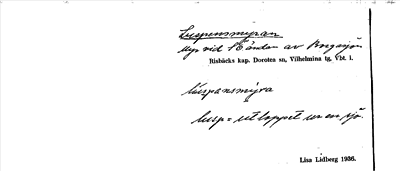 Luspensmyran
Myr vid SÖ ändan av
Risbäcks kap. Dorotea sn, Vilhelmina tg, Vbt. l.
luspansmyra
lusp = utloppet ur en sjö.
Lisa Lidberg 1936.